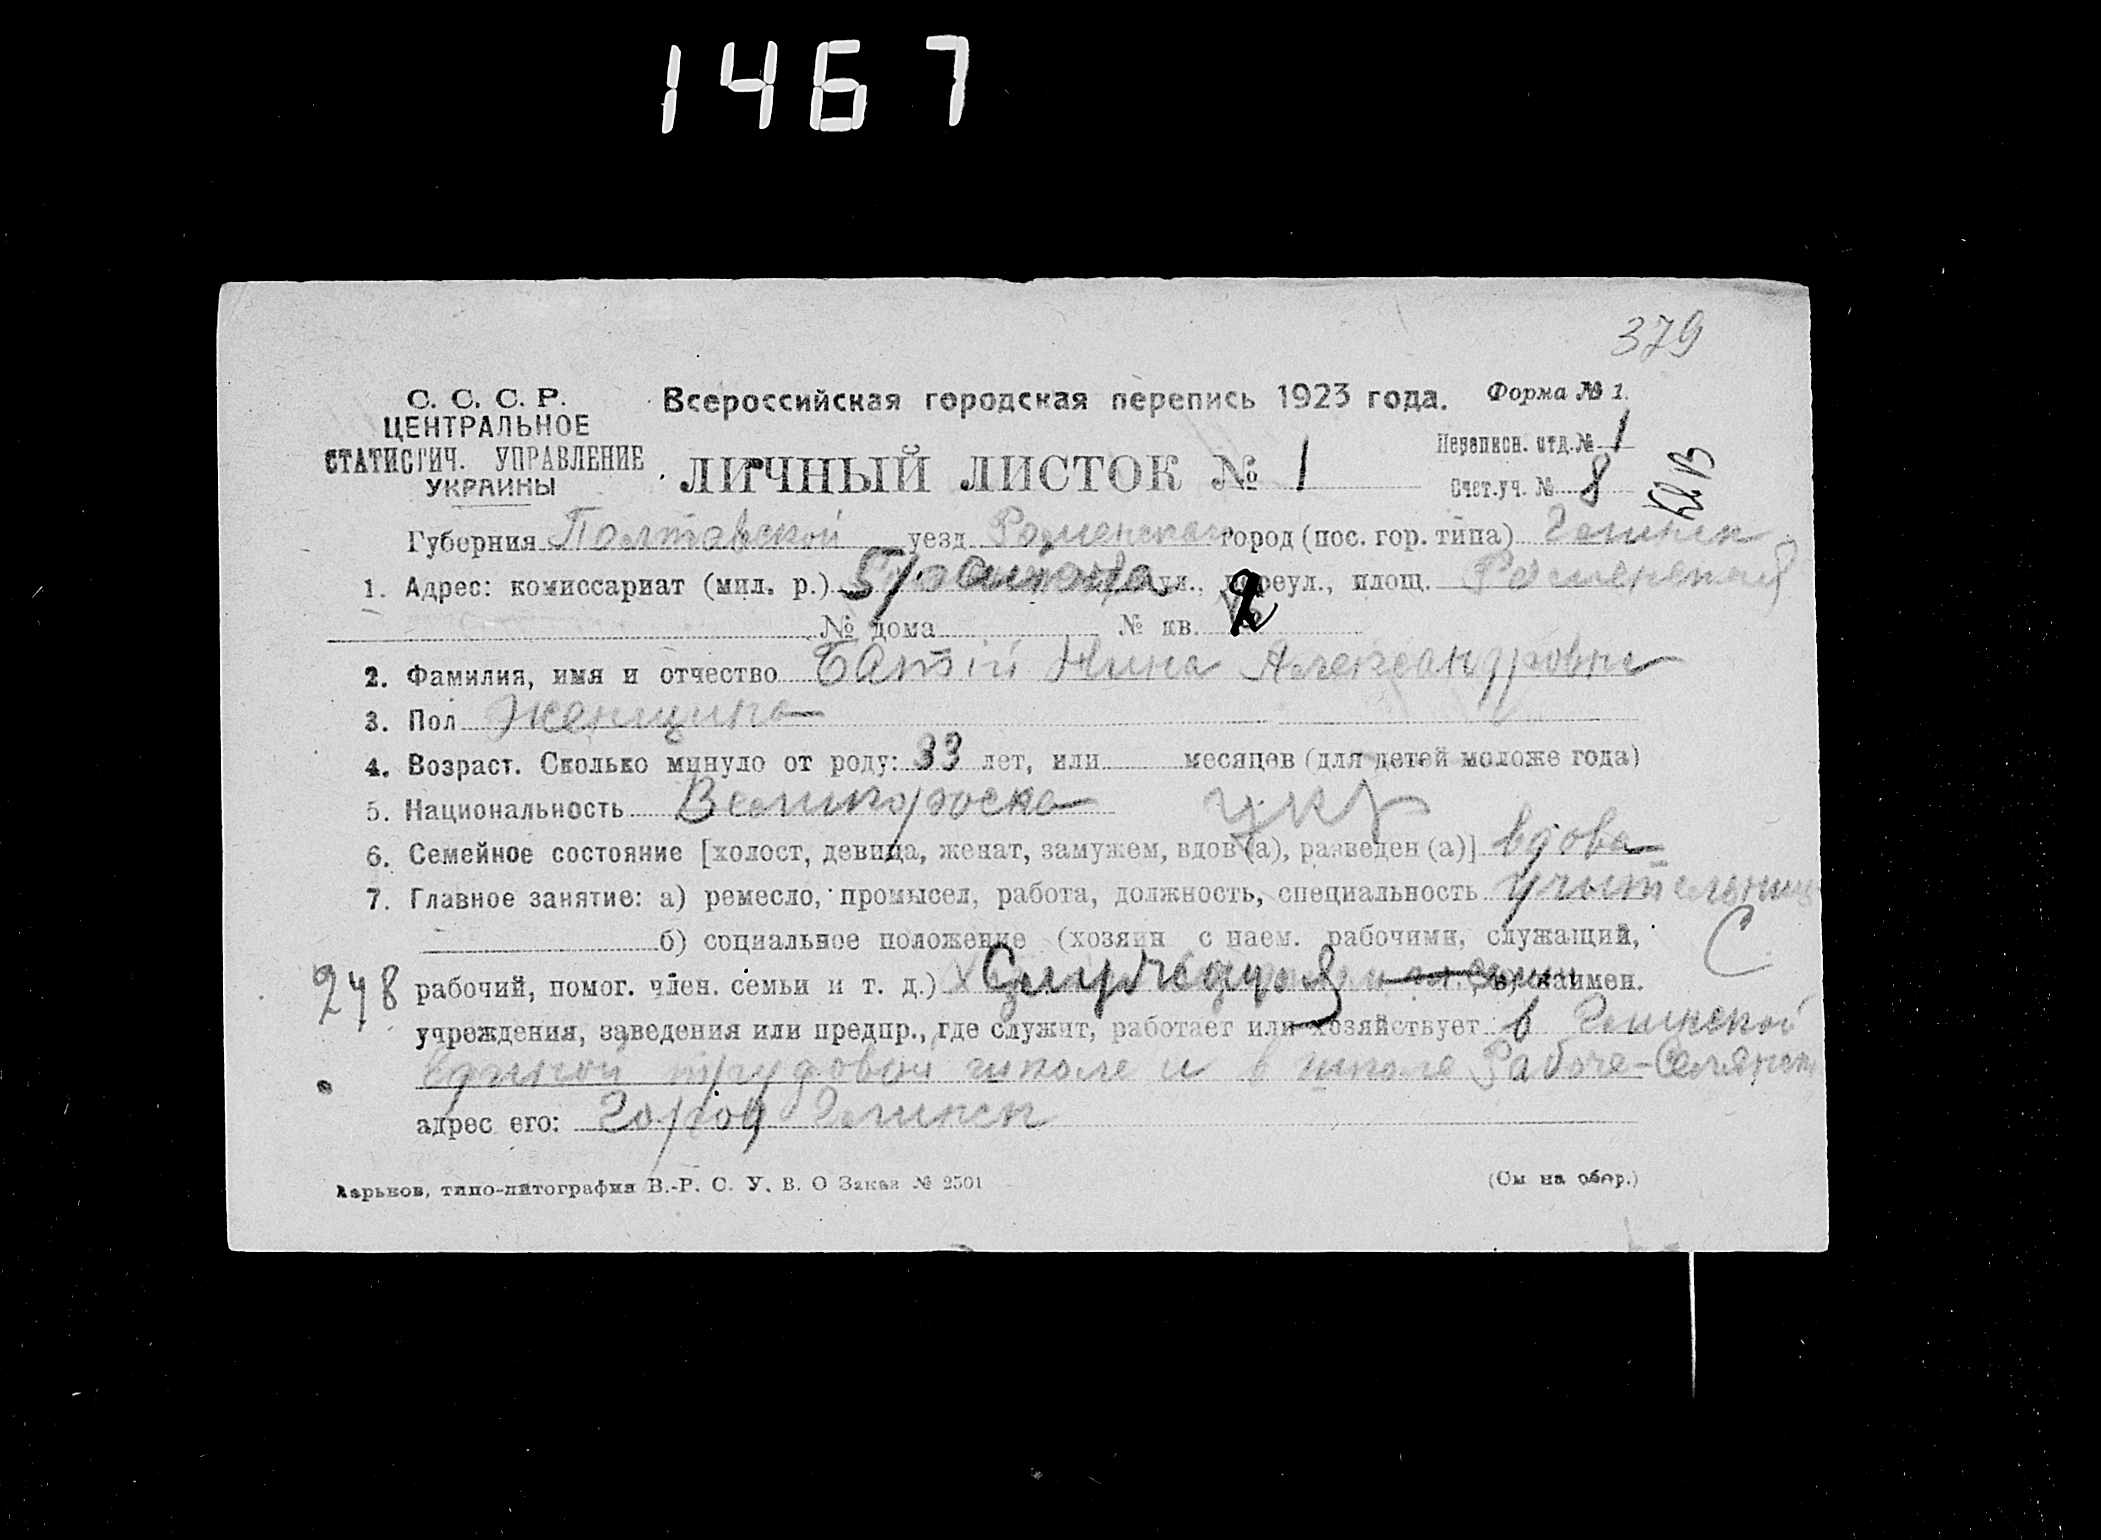 1467
379
С. С. С. Р.
ЦЕНТРАЛЬНОЕ
СТАТИСТИЧ. УПРАВЛЕНИЕ
УКРАИНЫ
Всероссийская городская перепись 1923 года.
Форма № 1.
ЛИЧНЫЙ ЛИСТОК № 1
Переписн. отд. № 1
Счет. уч. № 8
Губерния Полтавской уезд Роменская город (пос. гор. типа) Глинск
1. Адрес: комиссариат (мил. р.) ул., переул., площ. Роменской
№ дома № кв.
2. Фамилия, имя и отчество Батій Нина Александровна
3. Пол Женщина
4. Возраст. Сколько минуло от роду: 33 лет, или месяцев (для детей моложе года)
5. Национальность Великороска укр
6. Семейное состояние [холост, девица, женат, замужем, вдов (а), разведен (а)] вдова
7. Главное занятие: а) ремесло, промысел, работа, должность, специальность учительница
б) социальное положение (хозяин с наем. рабочими, служащий, С
248 рабочий, помог. член. семьи и т. д.) Служащая в) наимен.
учреждения, заведения или предпр., где служит, работает или хозяйствует в Глинской
Единой трудовой школе и в школе Рабоче-Селянск
адрес его: Город Глинск
Харьков, типо-литография В.-Р. С. У. В. О Заказ № 2501
(См на обор.)